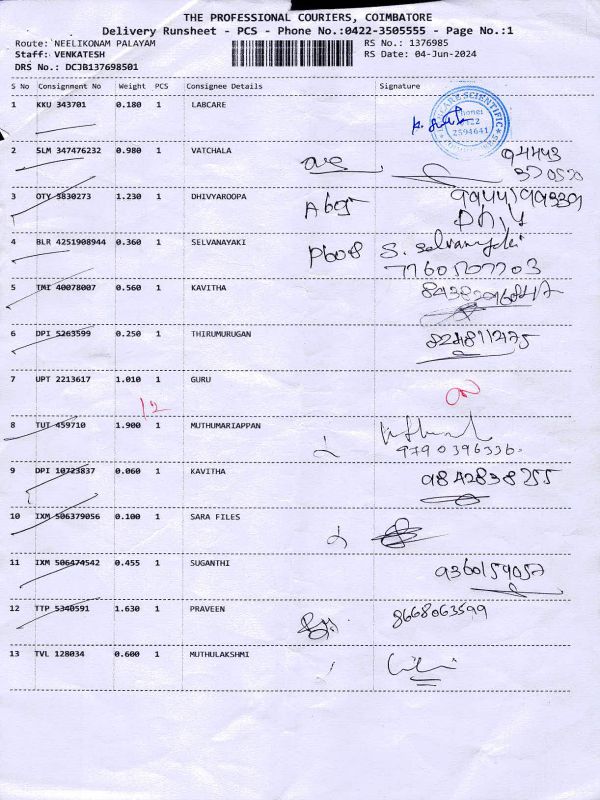 THE PROFESSIONAL COURIERS, COIMBATORE
Delivery Runsheet - PCS - Phone No.:0422-3505555 - Page No.:1
Route: NEELIKONAM PALAYAM RS No.: 1376985
Staff: VENKATESH RS Date: 04-Jun-2024
DRS No.: DCJB137698501
S No Consignment No Weight PCS Consignee Details Signature
1 KKU 343701 0.180 1 LABCARE
2594641
2 SLM 347476232 0.980 1 VATCHALA 94443
370520
3 OTY 3830273 1.230 1 DHIVYAROOPA
4 BLR 4251908944 0.360 1 SELVANAYAKI
5 TMI 40078007 0.560 1 KAVITHA
6 DPI 5263599 0.250 1 THIRUMURUGAN
7 UPT 2213617 1.010 1 GURU
12
8 TUT 459710 1.900 1 MUTHUMARIAPPAN
9790396336
9 DPI 10723837 0.060 1 KAVITHA 9842838255
10 IXM 506379056 0.100 1 SARA FILES
11 IXM 506474542 0.455 1 SUGANTHI
9360159057
12 TTP 5340591 1.630 1 PRAVEEN 8668063599
13 TVL 128034 0.600 1 MUTHULAKSHMI